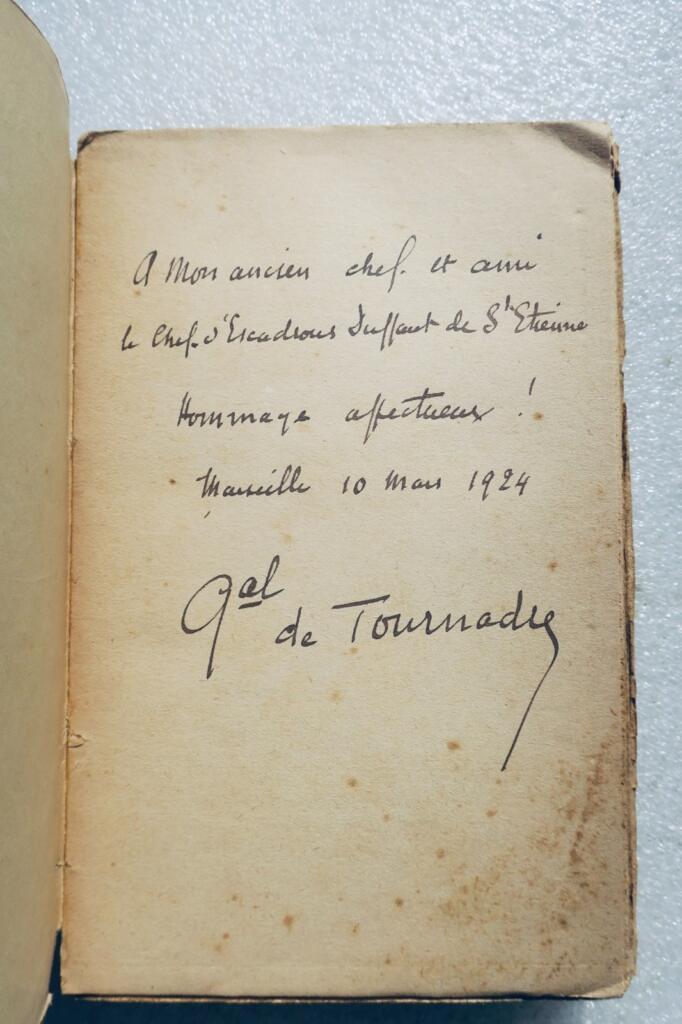 A Mon ancien chef. et ami
le Chef. d'Escadrons Duffaut de St Etienne
Hommage affectueux !
Marseille 10 Mars 1924
Gal
de Tournadre